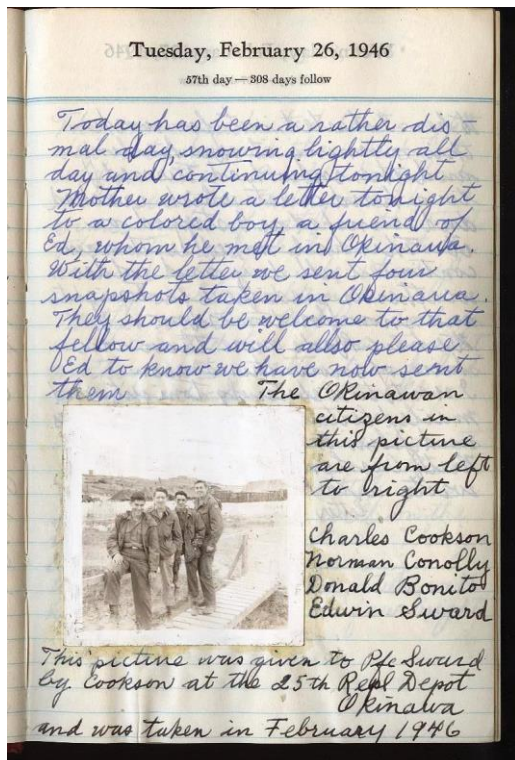 Tuesday, February 26, 1946
57th day — 308 days follow
Today has been a rather dis-
mal day, snowing lightly all
day and continuing tonight
Mother wrote a letter tonight
to a colored boy, a friend of
Ed, whom he met in Okinawa.
With the letter we sent four
snapshots taken in Okinawa.
They should be welcome to that
fellow and will allso please
Ed to know we have now sent
them
The Okinawan
citizens in
this picture
are from left
to right
Charles Cookson
Norman Conolly
Donald Bonito
Edwin Sward
This picture was given to Pfc Sward
by Cookson at the 25th Repl Depot
Okinawa
and was taken in February 1946